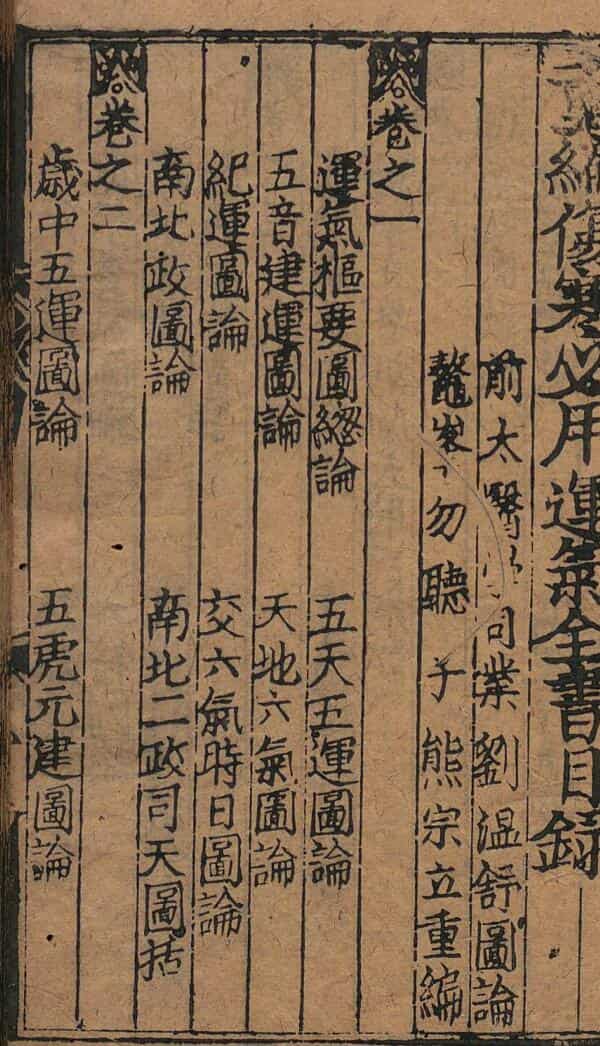 編傷寒必用運氣全書目錄
前太醫 同業劉溫舒圖論
鰲峯 勿聽子熊宗立重編
卷之一
運氣樞要圖緫論 五天五運圖論
五音建運圖論 天地六氣圖論
紀運圖論 交六氣時日圖論
南北政圖論 南北二政司天圖括
卷之二
歲中五運圖論 五虎元建圖論